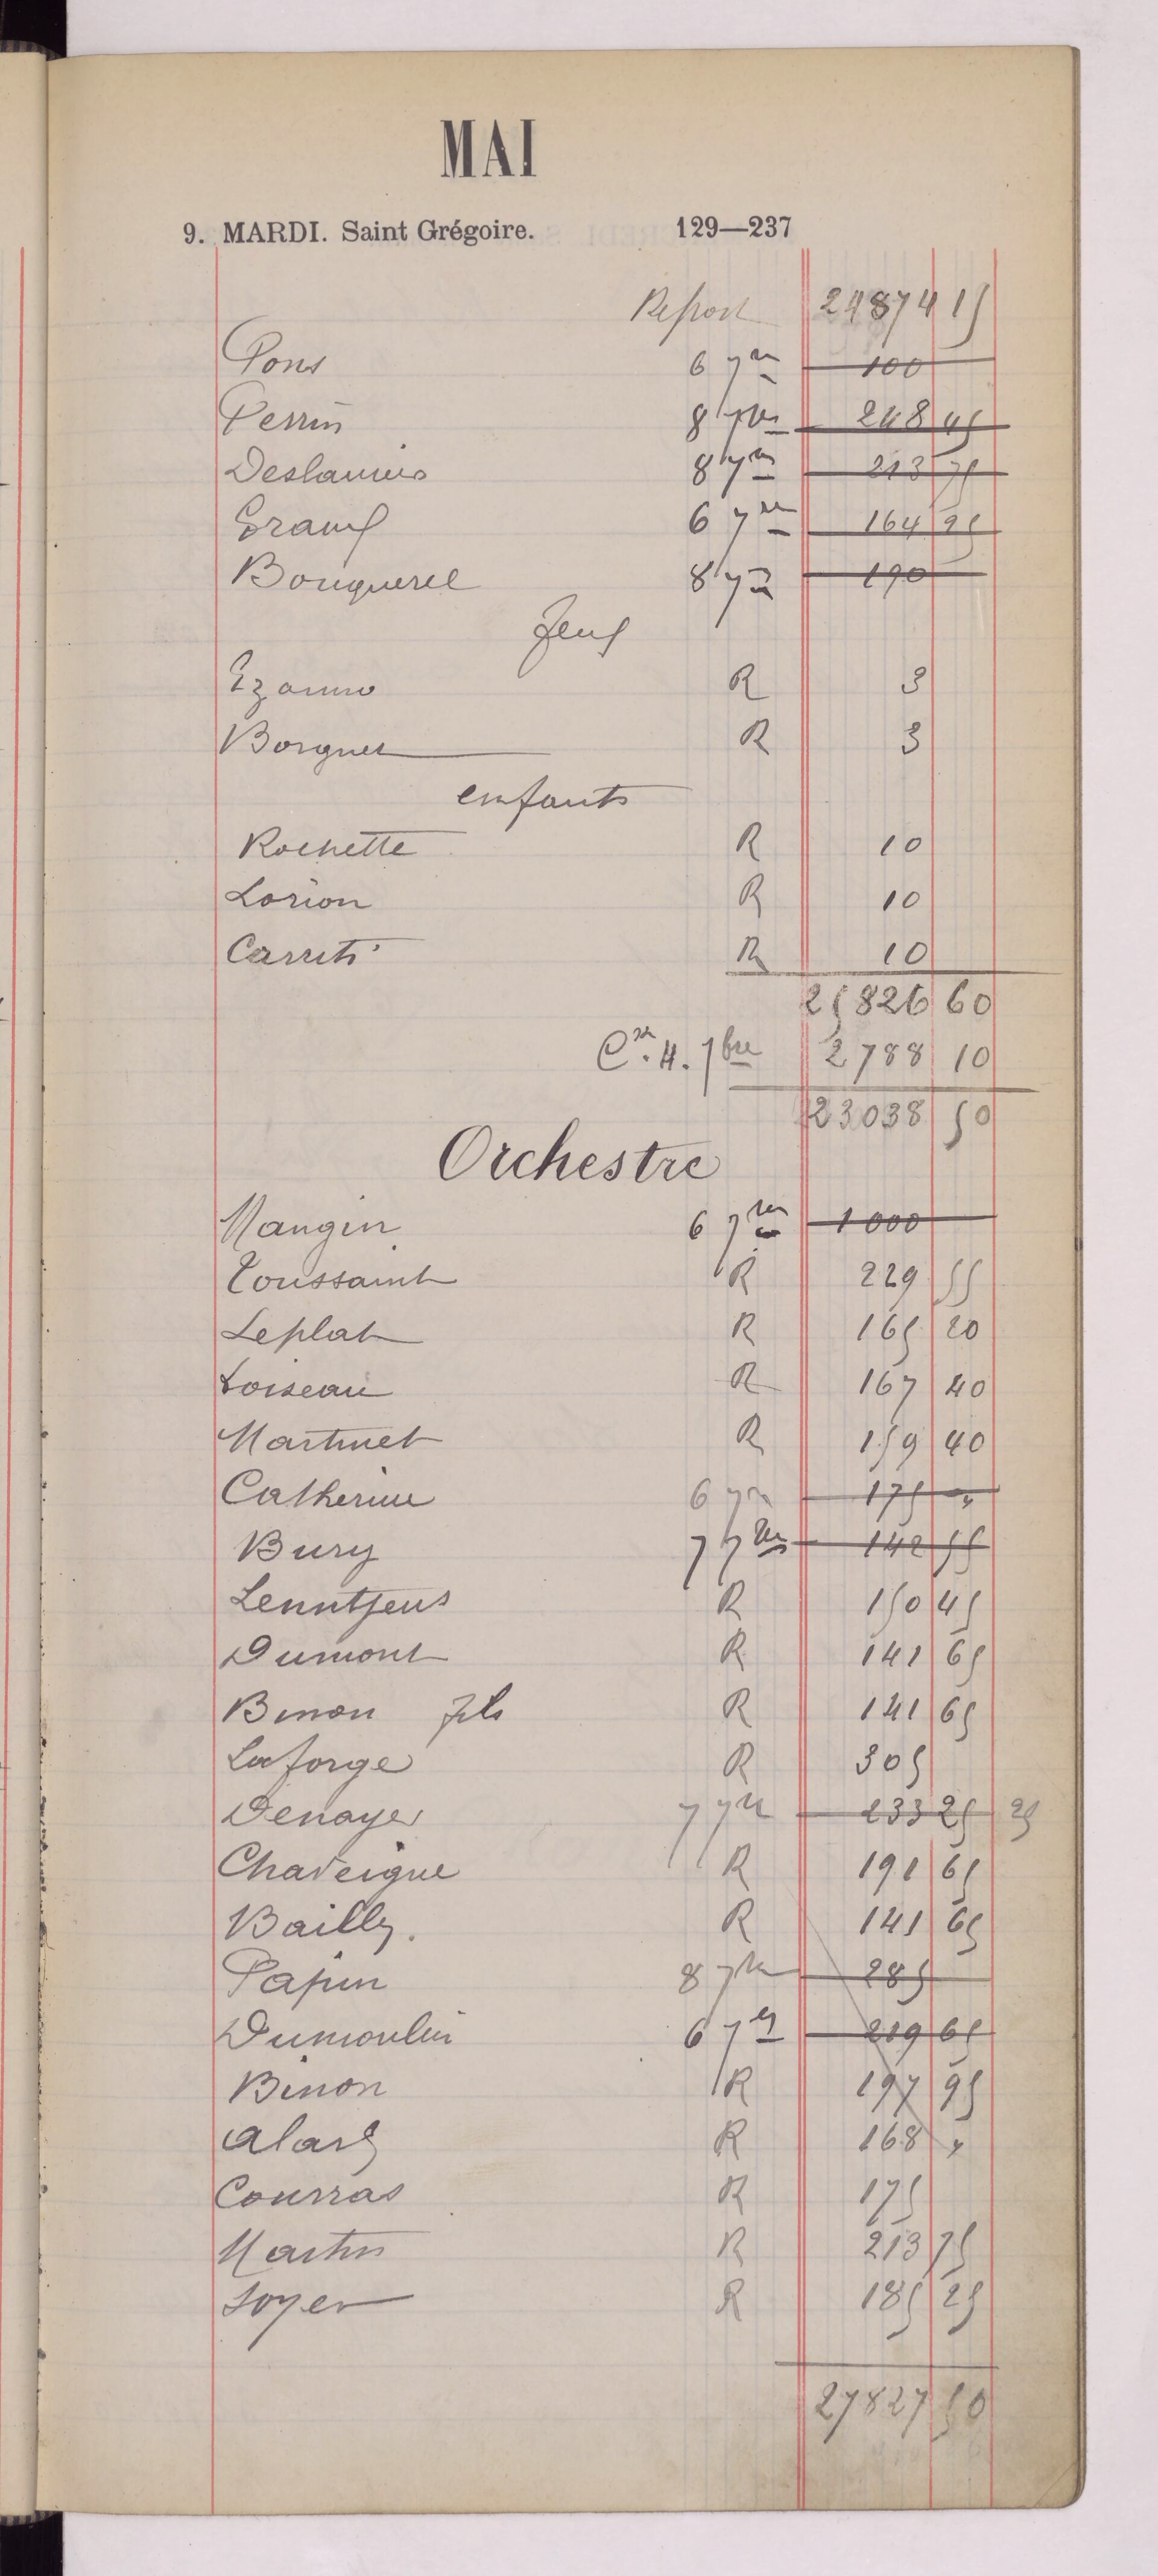 MAI
9. MARDI. Saint Grégoire. 129—237
Report 24874 15
Pons 6 7re 100
Perrin 8 7bre 248 45
Deslauriers 8 7re 213 75
8 7re 190
6 7re 164 95
Feux
R 3
Borgnet R 3
enfants
Rochette R 10
Lorion R 10
Carreti R 10
25826 60
Con. H. 7bre 2788 10
23038 50
Orchestre
Mangin 6 7re 1000
Toussaint R 229 55
Leplat R 165 20
Loiseau R 167 40
Martinet R 159 40
Catherine 6 7re 175 "
Bury 7 7bre 142 55
Lenntjens R 150 45
Dumont R 141 65
Binon fils R 141 65
Laforge R 305
Denayer 7 7re 233 25 25
Chaveigne R 191 65
Bailly. R 141 65
Papin 8 7re 285
Dumoulin 6 7re 219 65
Binon R 197 95
Alard R 168 "
Courras R 175
Martin R 213 75
Soyer R 185 25
27827 50